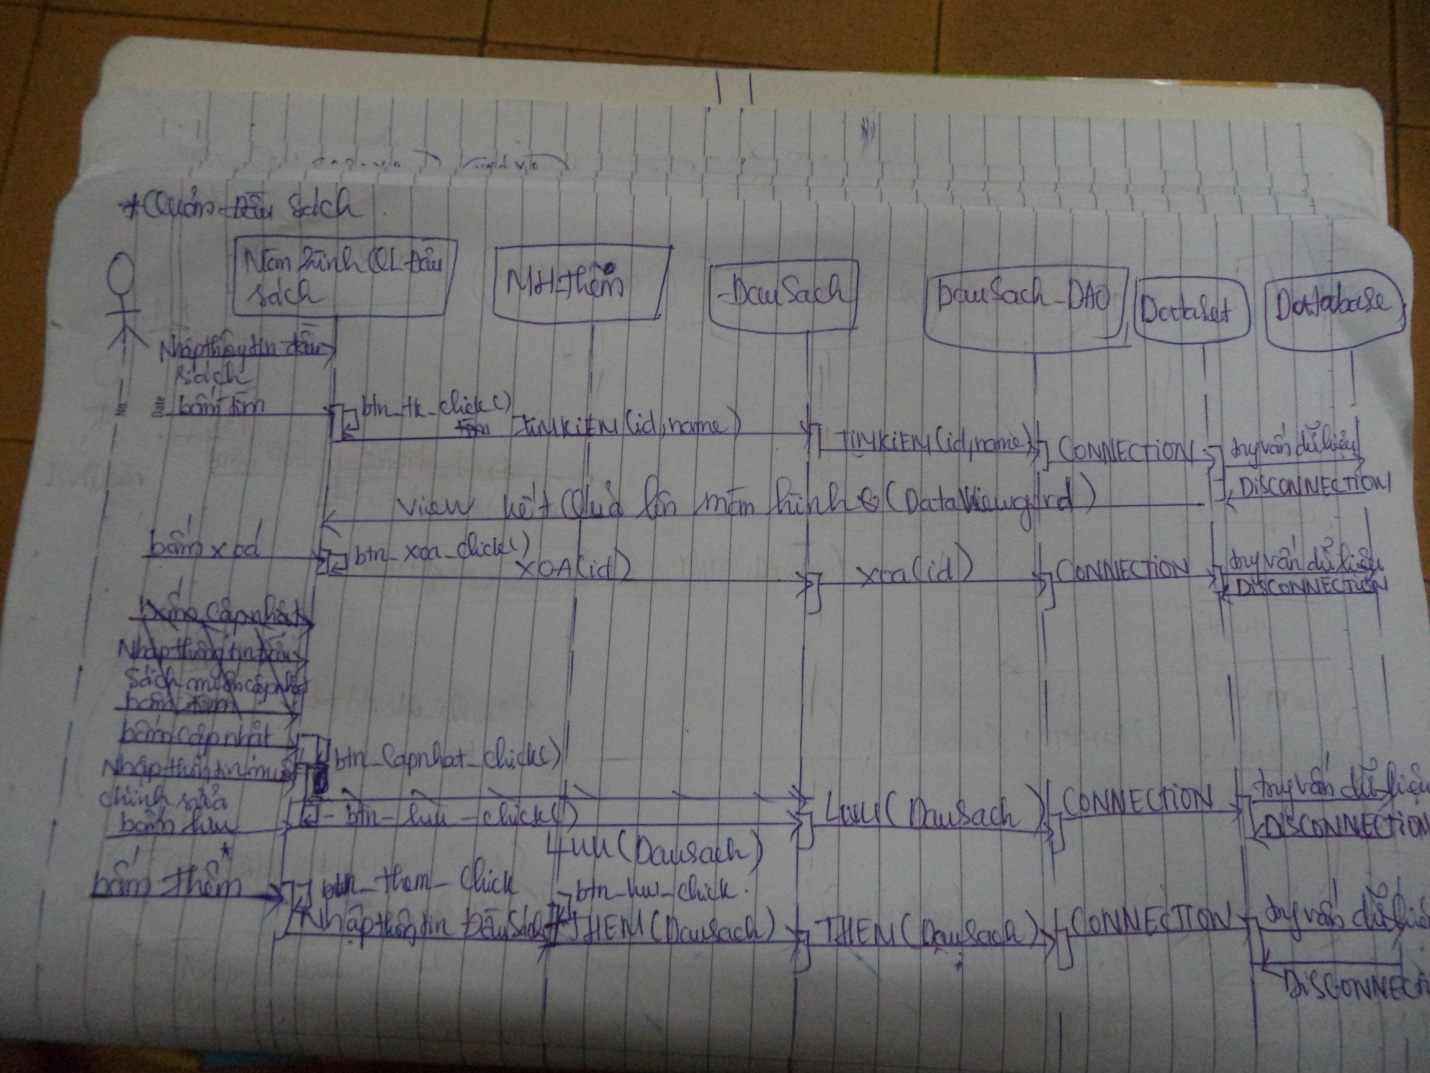 Đầu sách
Màn hình QL Đầu
sách
MH Thêm
DauSach
DauSach_DAO
Dataset
Database
Nhập thông tin đầu
sách
bấm tìm
btn_tk_click()
TIMKIEM(id,name)
TIMKIEM(id,name)
CONNECTION
truy vấn dữ liệu
DISCONNECTION
view kết quả lên màn hình (DataViewgird)
bấm xoá
btn_xoa_click()
XOA(id)
xoa(id)
CONNECTION
truy vấn dữ liệu
DISCONNECTION
bấm cập nhật
Nhập thông tin đầu
sách muốn cập nhật
bấm
bấm cập nhật
btn_capnhat_click()
Nhập thông tin muốn
chỉnh sửa
bấm lưu
btn_luu_click()
LUU(DauSach)
LUU(DauSach)
CONNECTION
truy vấn dữ liệu
DISCONNECTION
bấm thêm
btn_them_click
Nhập thông tin Đầu Sách
btn_luu_click
THEM(DauSach)
THEM(DauSach)
CONNECTION
truy vấn dữ liệu
DISCONNECT